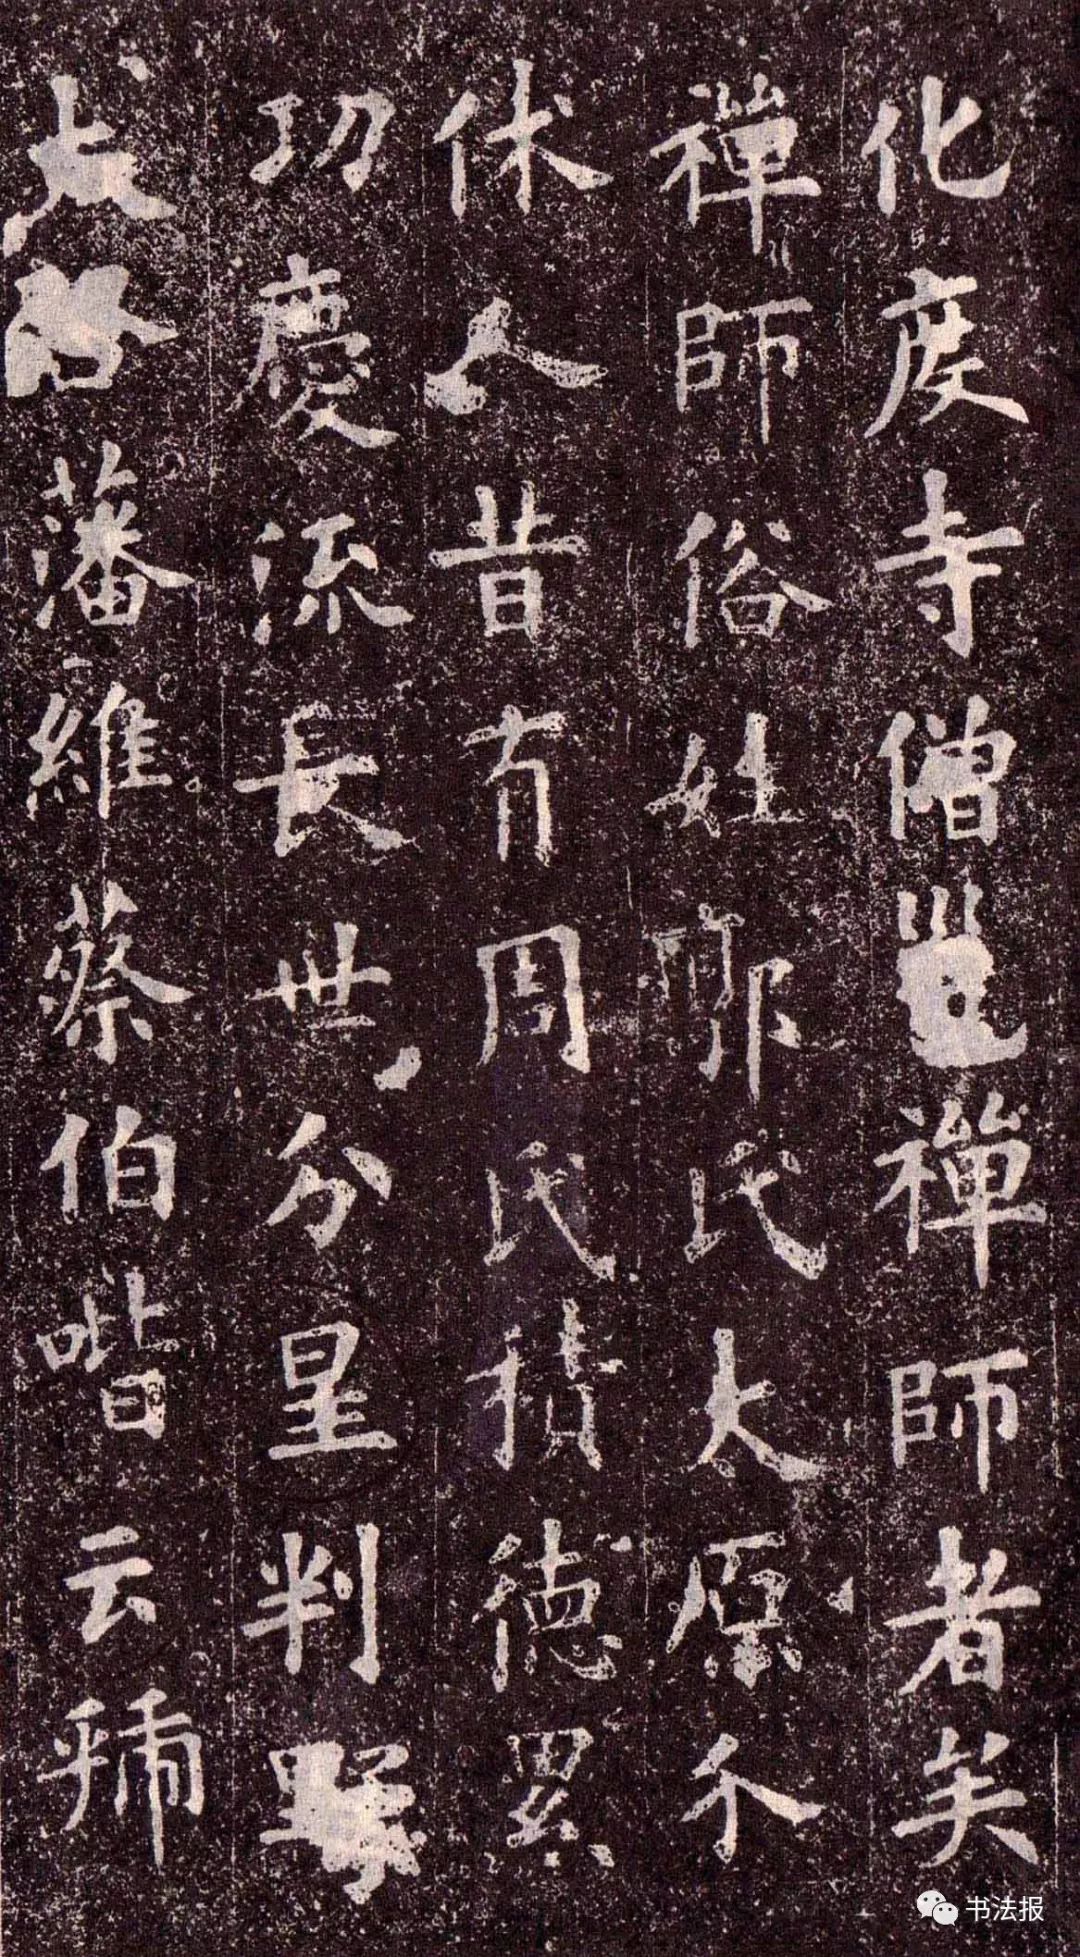 化度寺僧邕禪師者矣
禪師俗姓郭氏太原介
休人昔有周氏積德累
功慶流長世分星判野
大啓藩維蔡伯喈云虢
书法报